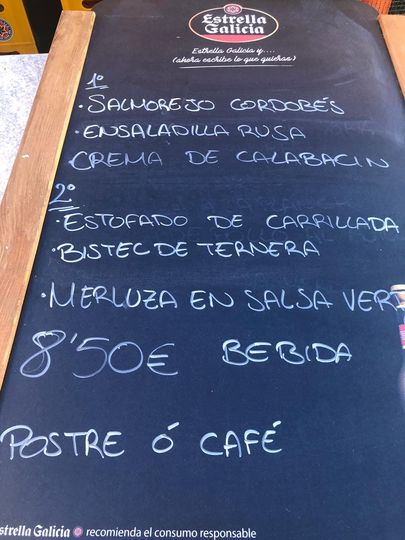 Estrella
Galicia
Estrella Galicia y....
(ahora escribe lo que quieras)
1º
· SALMOREJO CORDOBÉS
· ENSALADILLA RUSA
· CREMA DE CALABACIN
2º
· ESTOFADO DE CARRILLADA
· BISTEC DE TERNERA
· MERLUZA EN SALSA VER
8'50€ BEBIDA
POSTRE Ó CAFÉ
strella Galicia recomienda el consumo responsable